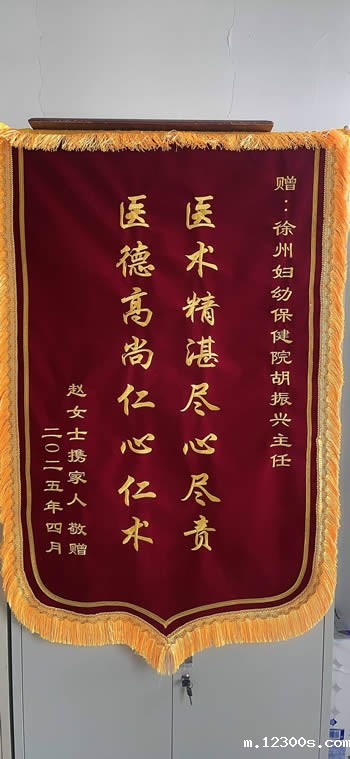 赠：徐州妇幼保健院胡振兴主任
医术精湛尽心尽责
医德高尚仁心仁术
赵女士携家人 敬赠
二〇二五年四月
m.12300s.com